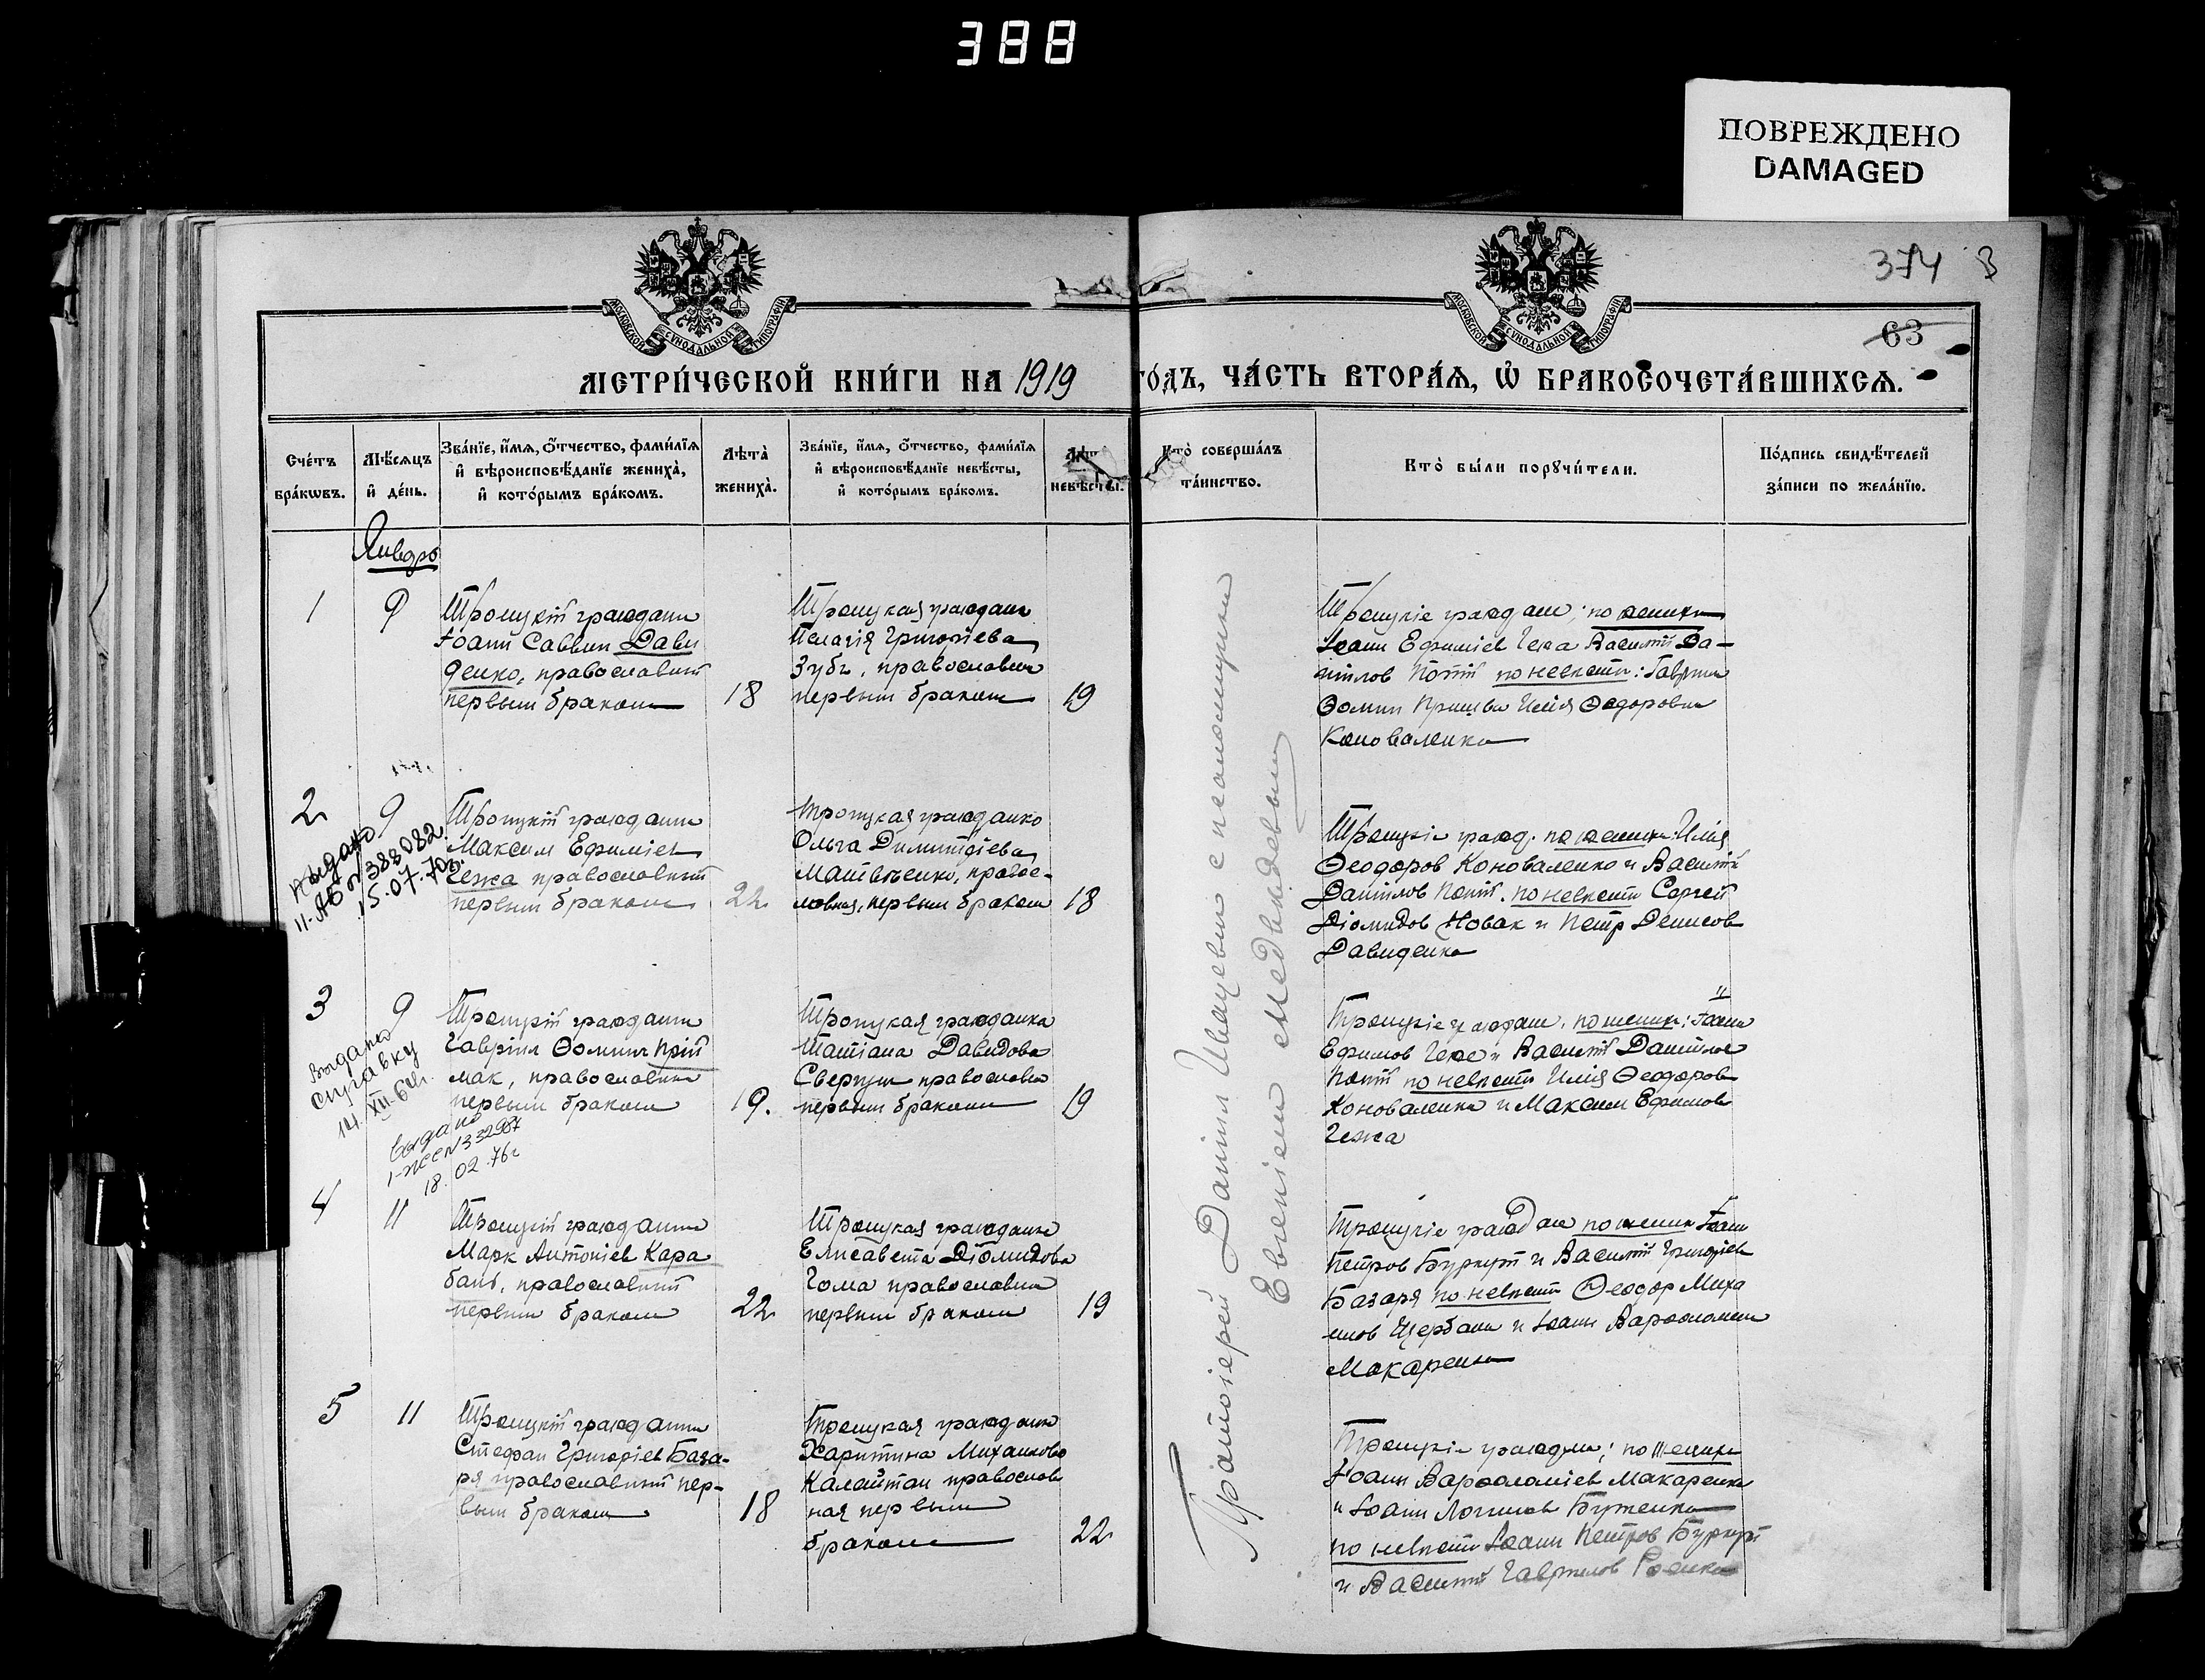 388
ПОВРЕЖДЕНО
DAMAGED
374
63
МОСКОВСКОЙ СѴНОДАЛЬНОЙ ТИПОГРАФІИ
МОСКОВСКОЙ СѴНОДАЛЬНОЙ ТИПОГРАФІИ
МЕТРИ́ЧЕСКОЙ КНИ́ГИ НА 1919 ГО́ДЪ, ЧА́СТЬ ВТОРА́Я, Ѿ БРАКОСОЧЕТА́ВШИХСЯ.
Сче́тъ
бра́кѡвъ.
Мѣ́сяцъ
и҆ де́нь.
Зва́нїе, и҆́мя, ѻ҆́тчество, фами́лїя
и҆ вѣроисповѣ́данїе жениха̀,
и҆ кото́рымъ бра́комъ.
Лѣта̀
жениха̀.
Зва́нїе, и҆́мя, ѻ҆́тчество, фами́лїя
и҆ вѣроисповѣ́данїе невѣ́сты,
и҆ кото́рымъ бра́комъ.
невѣ́сты.
Кто̀ соверша́лъ
та́инство.
Кто̀ бы́ли порꙋчи́тели.
По́дпись свидѣ́телей
за́писи по жела́нїю.
Январь
1
9
Троицкій гражданин
Іоанн Саввин Дави
денко, православный
первым браком
18
Троицкая граждан
Пелагія Григоріева
Зубъ, православн
первым браком
19
Троицкіе граждане; по жениху
Іоанн Ефиміев Чежа Василій Да-
ніилов Попій по невести: Гавріил
Ѳомин Илія Ѳеодоров
Коноваленко
2
9
выдано
388082
15.07.70г.
Троицкій гражданин
Максим Ефиміев
Чежа православный
первым браком
22
Троицкая гражданка
Ольга Димитріева
Матвѣенко, правос-
лавная, первым браком
18
Троицкіе гражд. по жениху: Илія
Ѳеодоров Коноваленко и Василій
Даніилов Попій. по невести Сергей
Діомидов Новак и Петр Денисов
Давиденко
3
9
Выдано
справку
14.XII-64г.
выдано
18.02.76г
Троицкій гражданин
Гавріил Ѳомин Прій
мак, православный
первым браком
19.
Троицкая гражданка
Татіана Давидова
православн
первым браком
19
Троицкіе граждане, по жениху: Іоанн
Ефимов Чежа и Василій Даніилов
Попій по невести Илія Ѳеодоров
Коноваленко и Максим Ефимов
Чежа
4
11
Троицкій гражданин
Марк Антоніев Кара
бань, православный
первым браком
22
Троицкая гражданка
Елисавета Діомидова
Чома православн
первым браком
19
Троицкіе граждане по жениху Іоанн
Петров Буркут и Василій Григоріев
Базаря по невести Ѳеодор Миха
илов Щербань и Іоанн Варѳоломеев
Макаренко
5
11
Троицкій гражданин
Стефан Григоріев База-
ря православный пер-
вым браком
18
Троицкая гражданка
Харитина Михаилова
Калайтан православ
ная первым
браком
22
Троицкіе граждане; по жениху
Іоанн Варѳоломіев Макаренко
и Іоанн Логинов Бутенко
по невести Іоанн Петров Буркут
и Василій Гаврилов
Протоіерей Даниил Иващевич с псаломщиком
Евгением Медвидевым